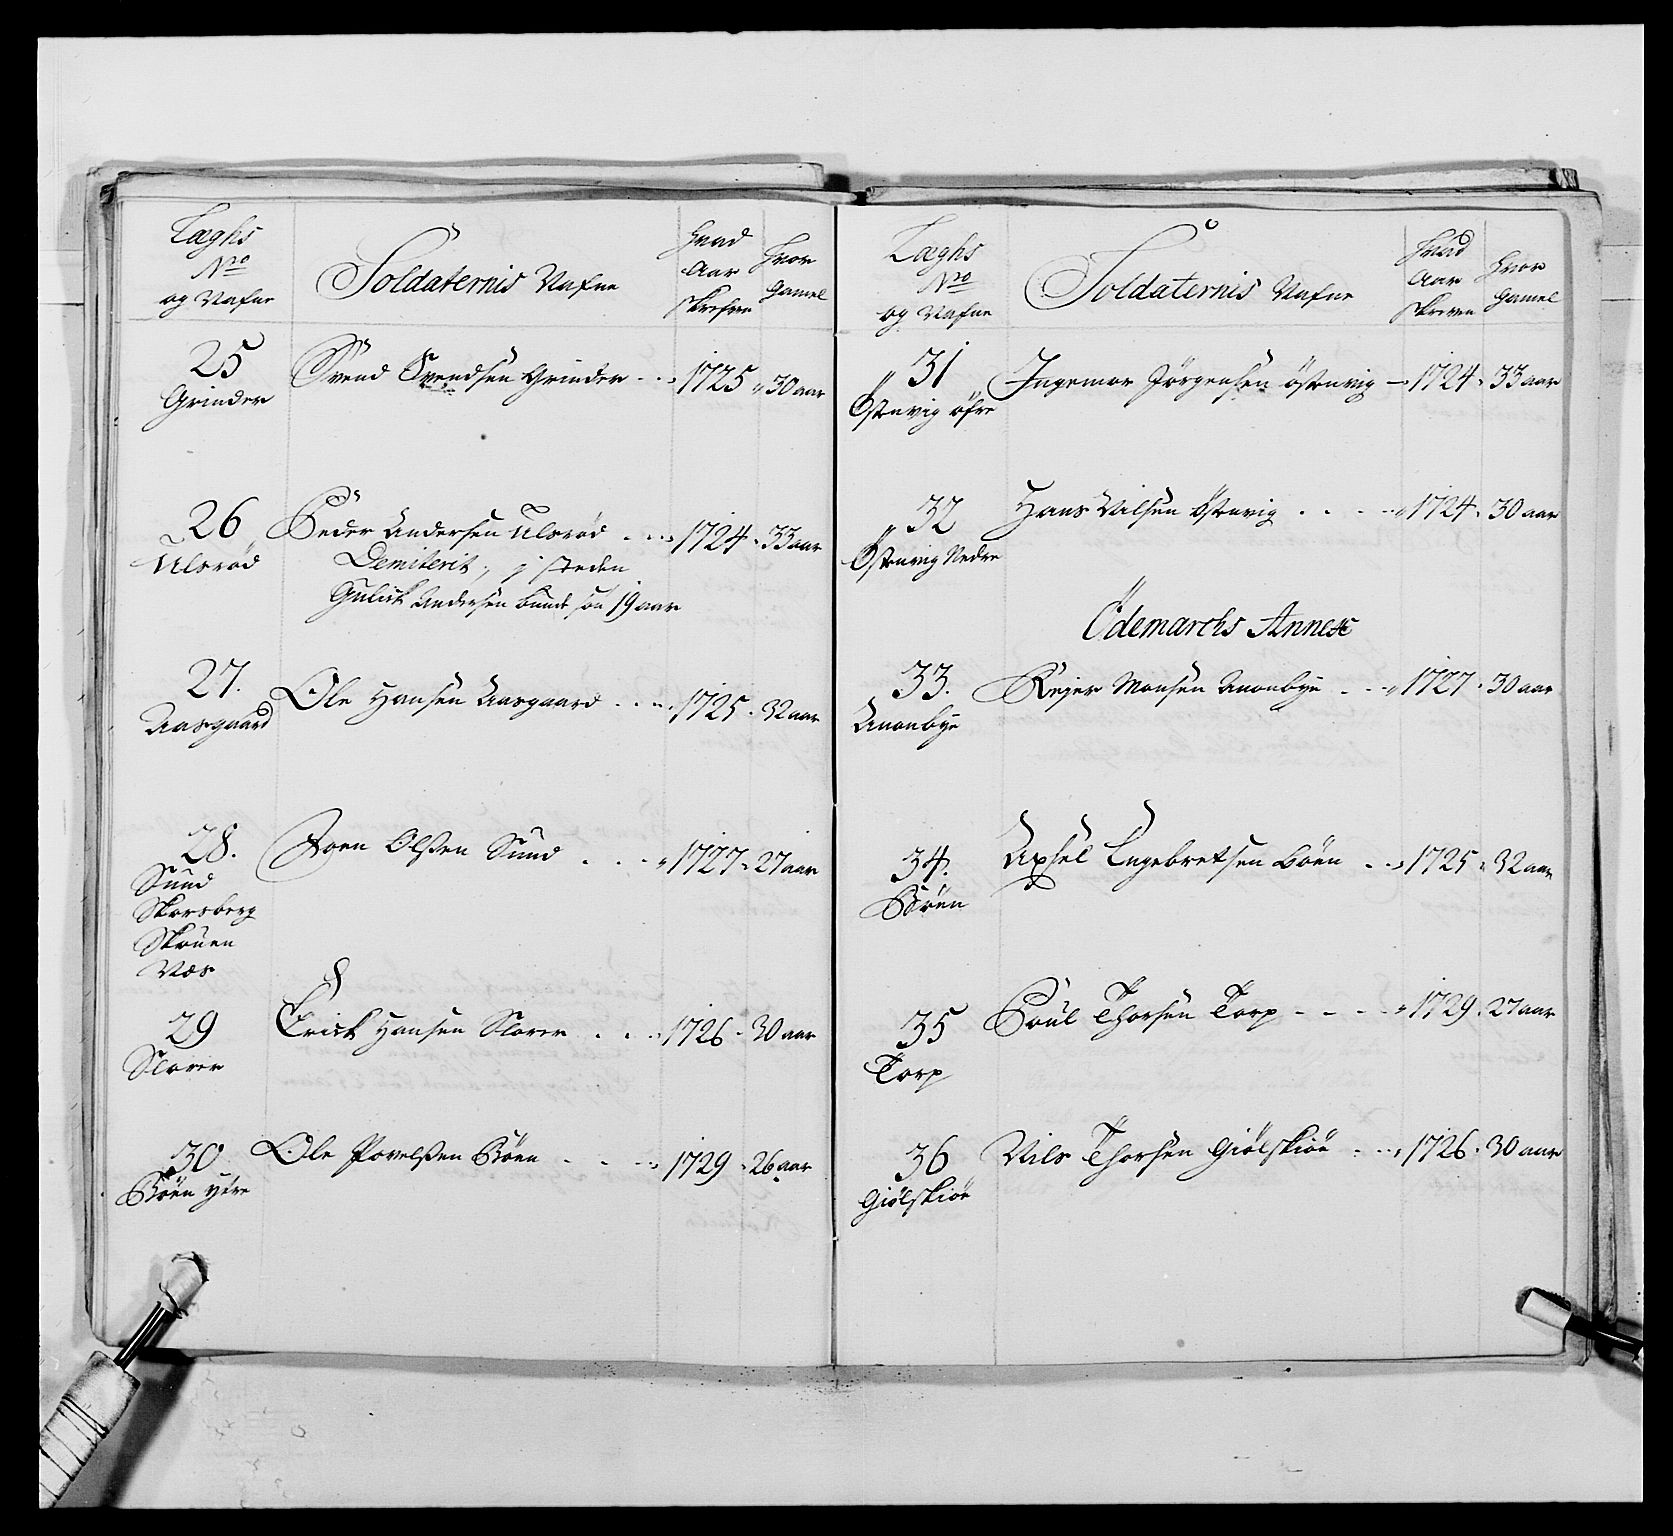 Læghs
No
og Nafne
Soldaternis Nafne
Hvad
Aar
skrefven
Hvor
gamel
25
Grinder
Svend Svendsen Grinder 1725 30 aar
26
Ulsrød
Peder Andersen Ulsrød 1724 33 aar
Demiterit, j steden
Gulick Andersen bunde søn 19 aar
27.
Aasgaard
Ole Hansen Aasgaard 1725 32 aar
28.
Sund
Skarsberg
Skouen
Næs
Joen Olssen Sund 1727 27 aar
29
Slorer
Erick Hansen Slorer 1726 30 aar
30
Böen yttre
Ole Povelssen Böen 1729 26 aar
Læghs
No
og Nafne
Soldaternis Nafne
Hvad
Aar
skreven
Hvor
gamel
31
Östnvig öfre
Ingemor Jörgensen Östnvig 1724 33 aar
32
Östnvig Nedre
Hans Nilsen Östnvig 1724 30 aar
Ödemarchs Annex
33.
Anonbye
Rejer Monsen Anonbye 1727 30 aar
34.
Böen
Axsel Engebretsen Böen 1725 32 aar
35
Torp
Poul Thorsen Torp 1729 27 aar
36
Giölskiöe
Nils Thorsen Giölskiöe 1726 30 aar